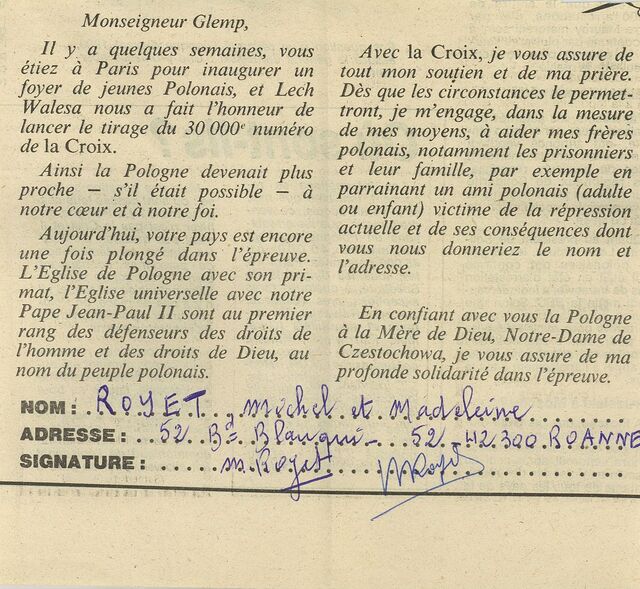 Monseigneur Glemp,
Il y a quelques semaines, vous
étiez à Paris pour inaugurer un
foyer de jeunes Polonais, et Lech
Walesa nous a fait l'honneur de
lancer le tirage du 30 000e numéro
de la Croix.
Ainsi la Pologne devenait plus
proche — s'il était possible — à
notre cœur et à notre foi.
Aujourd'hui, votre pays est encore
une fois plongé dans l'épreuve.
L'Eglise de Pologne avec son pri-
mat, l'Eglise universelle avec notre
Pape Jean-Paul II sont au premier
rang des défenseurs des droits de
l'homme et des droits de Dieu, au
nom du peuple polonais.
Avec la Croix, je vous assure de
tout mon soutien et de ma prière.
Dès que les circonstances le permet-
tront, je m'engage, dans la mesure
de mes moyens, à aider mes frères
polonais, notamment les prisonniers
et leur famille, par exemple en
parrainant un ami polonais (adulte
ou enfant) victime de la répression
actuelle et de ses conséquences dont
vous nous donneriez le nom et
l'adresse.
En confiant avec vous la Pologne
à la Mère de Dieu, Notre-Dame de
Czestochowa, je vous assure de ma
profonde solidarité dans l'épreuve.
NOM: ROYET, Michel et Madeleine
ADRESSE: 52 Bd Blanqui - 52 - 42.300 ROANNE
SIGNATURE: M. Royet